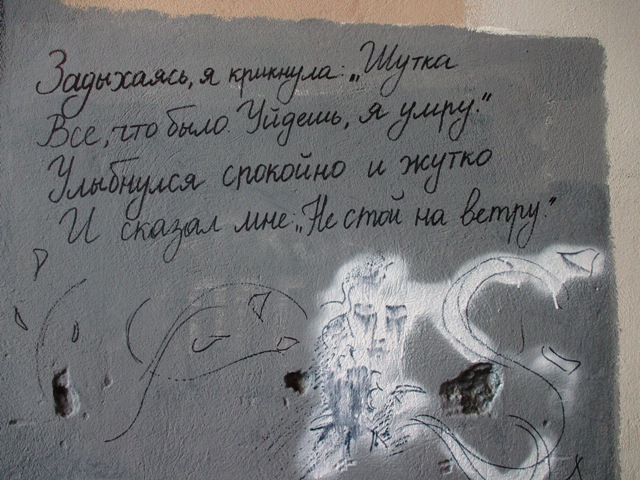 Задыхаясь, я крикнула: „Шутка
Все, что было. Уйдешь, я умру."
Улыбнулся спокойно и жутко
И сказал мне: „Не стой на ветру."